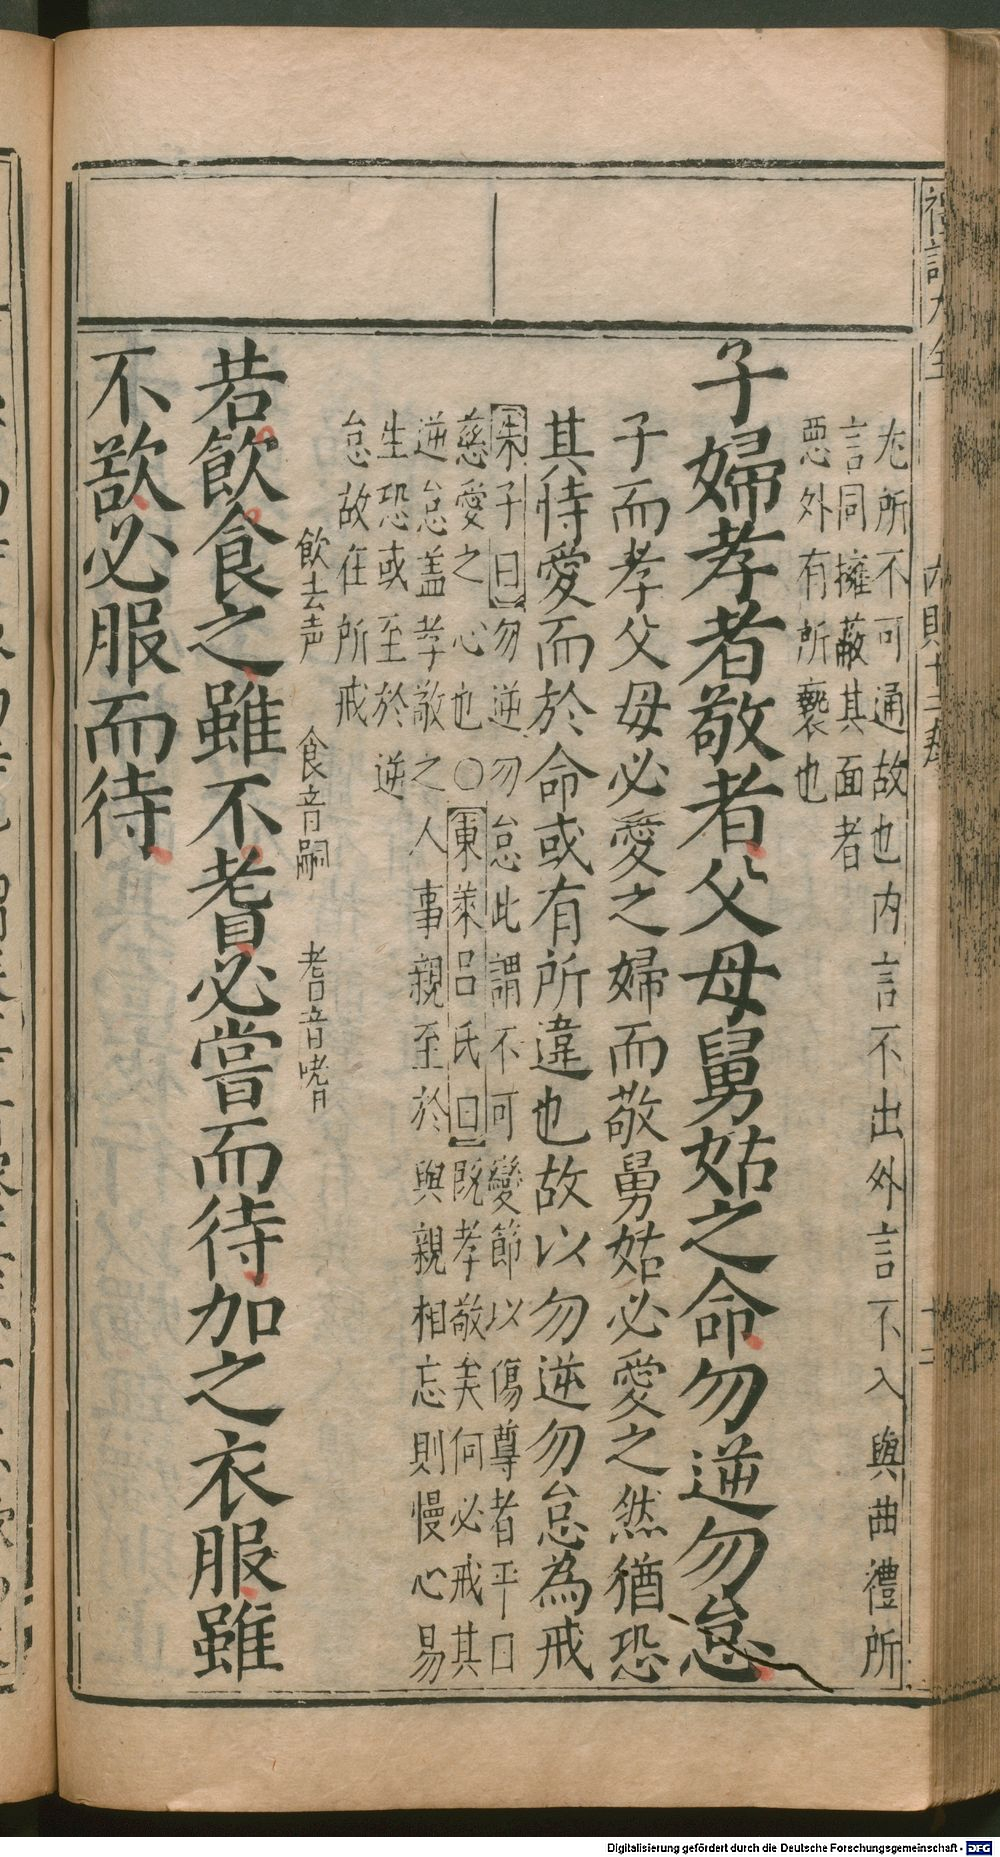 尤所不可通故也內言不出外言不入與曲禮所
言同擁蔽其面者
惡外有所褻也
子婦孝者敬者父母舅姑之命勿逆勿怠
子而孝父母必愛之婦而敬舅姑必愛之然猶恐
其恃愛而於命或有所違也故以勿逆勿怠為戒
朱子曰勿逆勿怠此謂不可變節以傷尊者平口
慈愛之心也○東萊呂氏曰既孝敬矣何必戒其
逆怠盖孝敬之人事親至於與親相忘則慢心易
生恐或至於逆
怠故在所戒
飲去声 食音嗣 耆音嗜
若飲食之雖不耆必嘗而待加之衣服雖
不欲必服而待
禮記大全 內則十二
十二
Digitalisierung gefördert durch die Deutsche Forschungsgemeinschaft - DFG